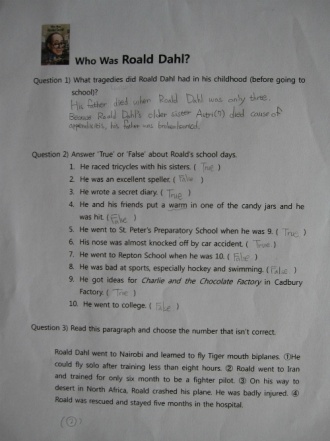 Who Was Roald Dahl?
Question 1) What tragedies did Roald Dahl had in his childhood (before going to
school)?
His father died when Roald Dahl was only three.
Because Roald Dahl's older sister Astri(7) died cause of
appendicitis, his father was brokenhearted.
Question 2) Answer 'True' or 'False' about Roald's school days.
1. He raced tricycles with his sisters. ( True )
2. He was an excellent speller. ( False )
3. He wrote a secret diary. ( True )
4. He and his friends put a warm in one of the candy jars and he
was hit. ( False )
5. He went to St. Peter's Preparatory School when he was 9. ( True )
6. His nose was almost knocked off by car accident. ( True )
7. He went to Repton School when he was 10. ( False )
8. He was bad at sports, especially hockey and swimming. ( False )
9. He got ideas for Charlie and the Chocolate Factory in Cadbury
Factory. ( True )
10. He went to college. ( False )
Question 3) Read this paragraph and choose the number that isn't correct.
Roald Dahl went to Nairobi and learned to fly Tiger mouth biplanes. ①He
could fly solo after training less than eight hours. ② Roald went to Iran
and trained for only six month to be a fighter pilot. ③ On his way to
desert in North Africa, Roald crashed his plane. He was badly injured. ④
Roald was rescued and stayed five months in the hospital.
(②)